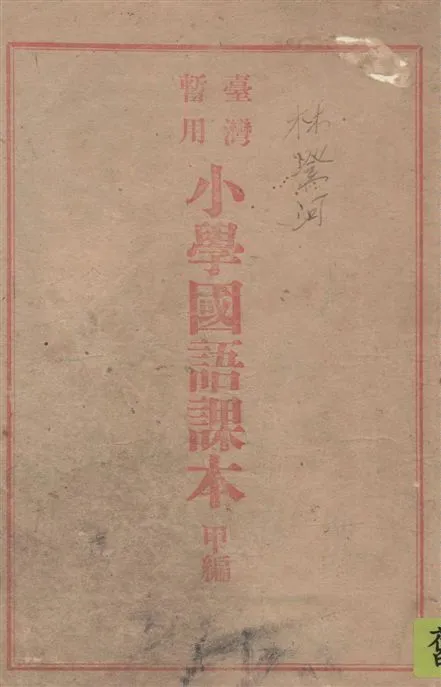 臺灣
暫用
小學國語課本
甲編
林
河
舊